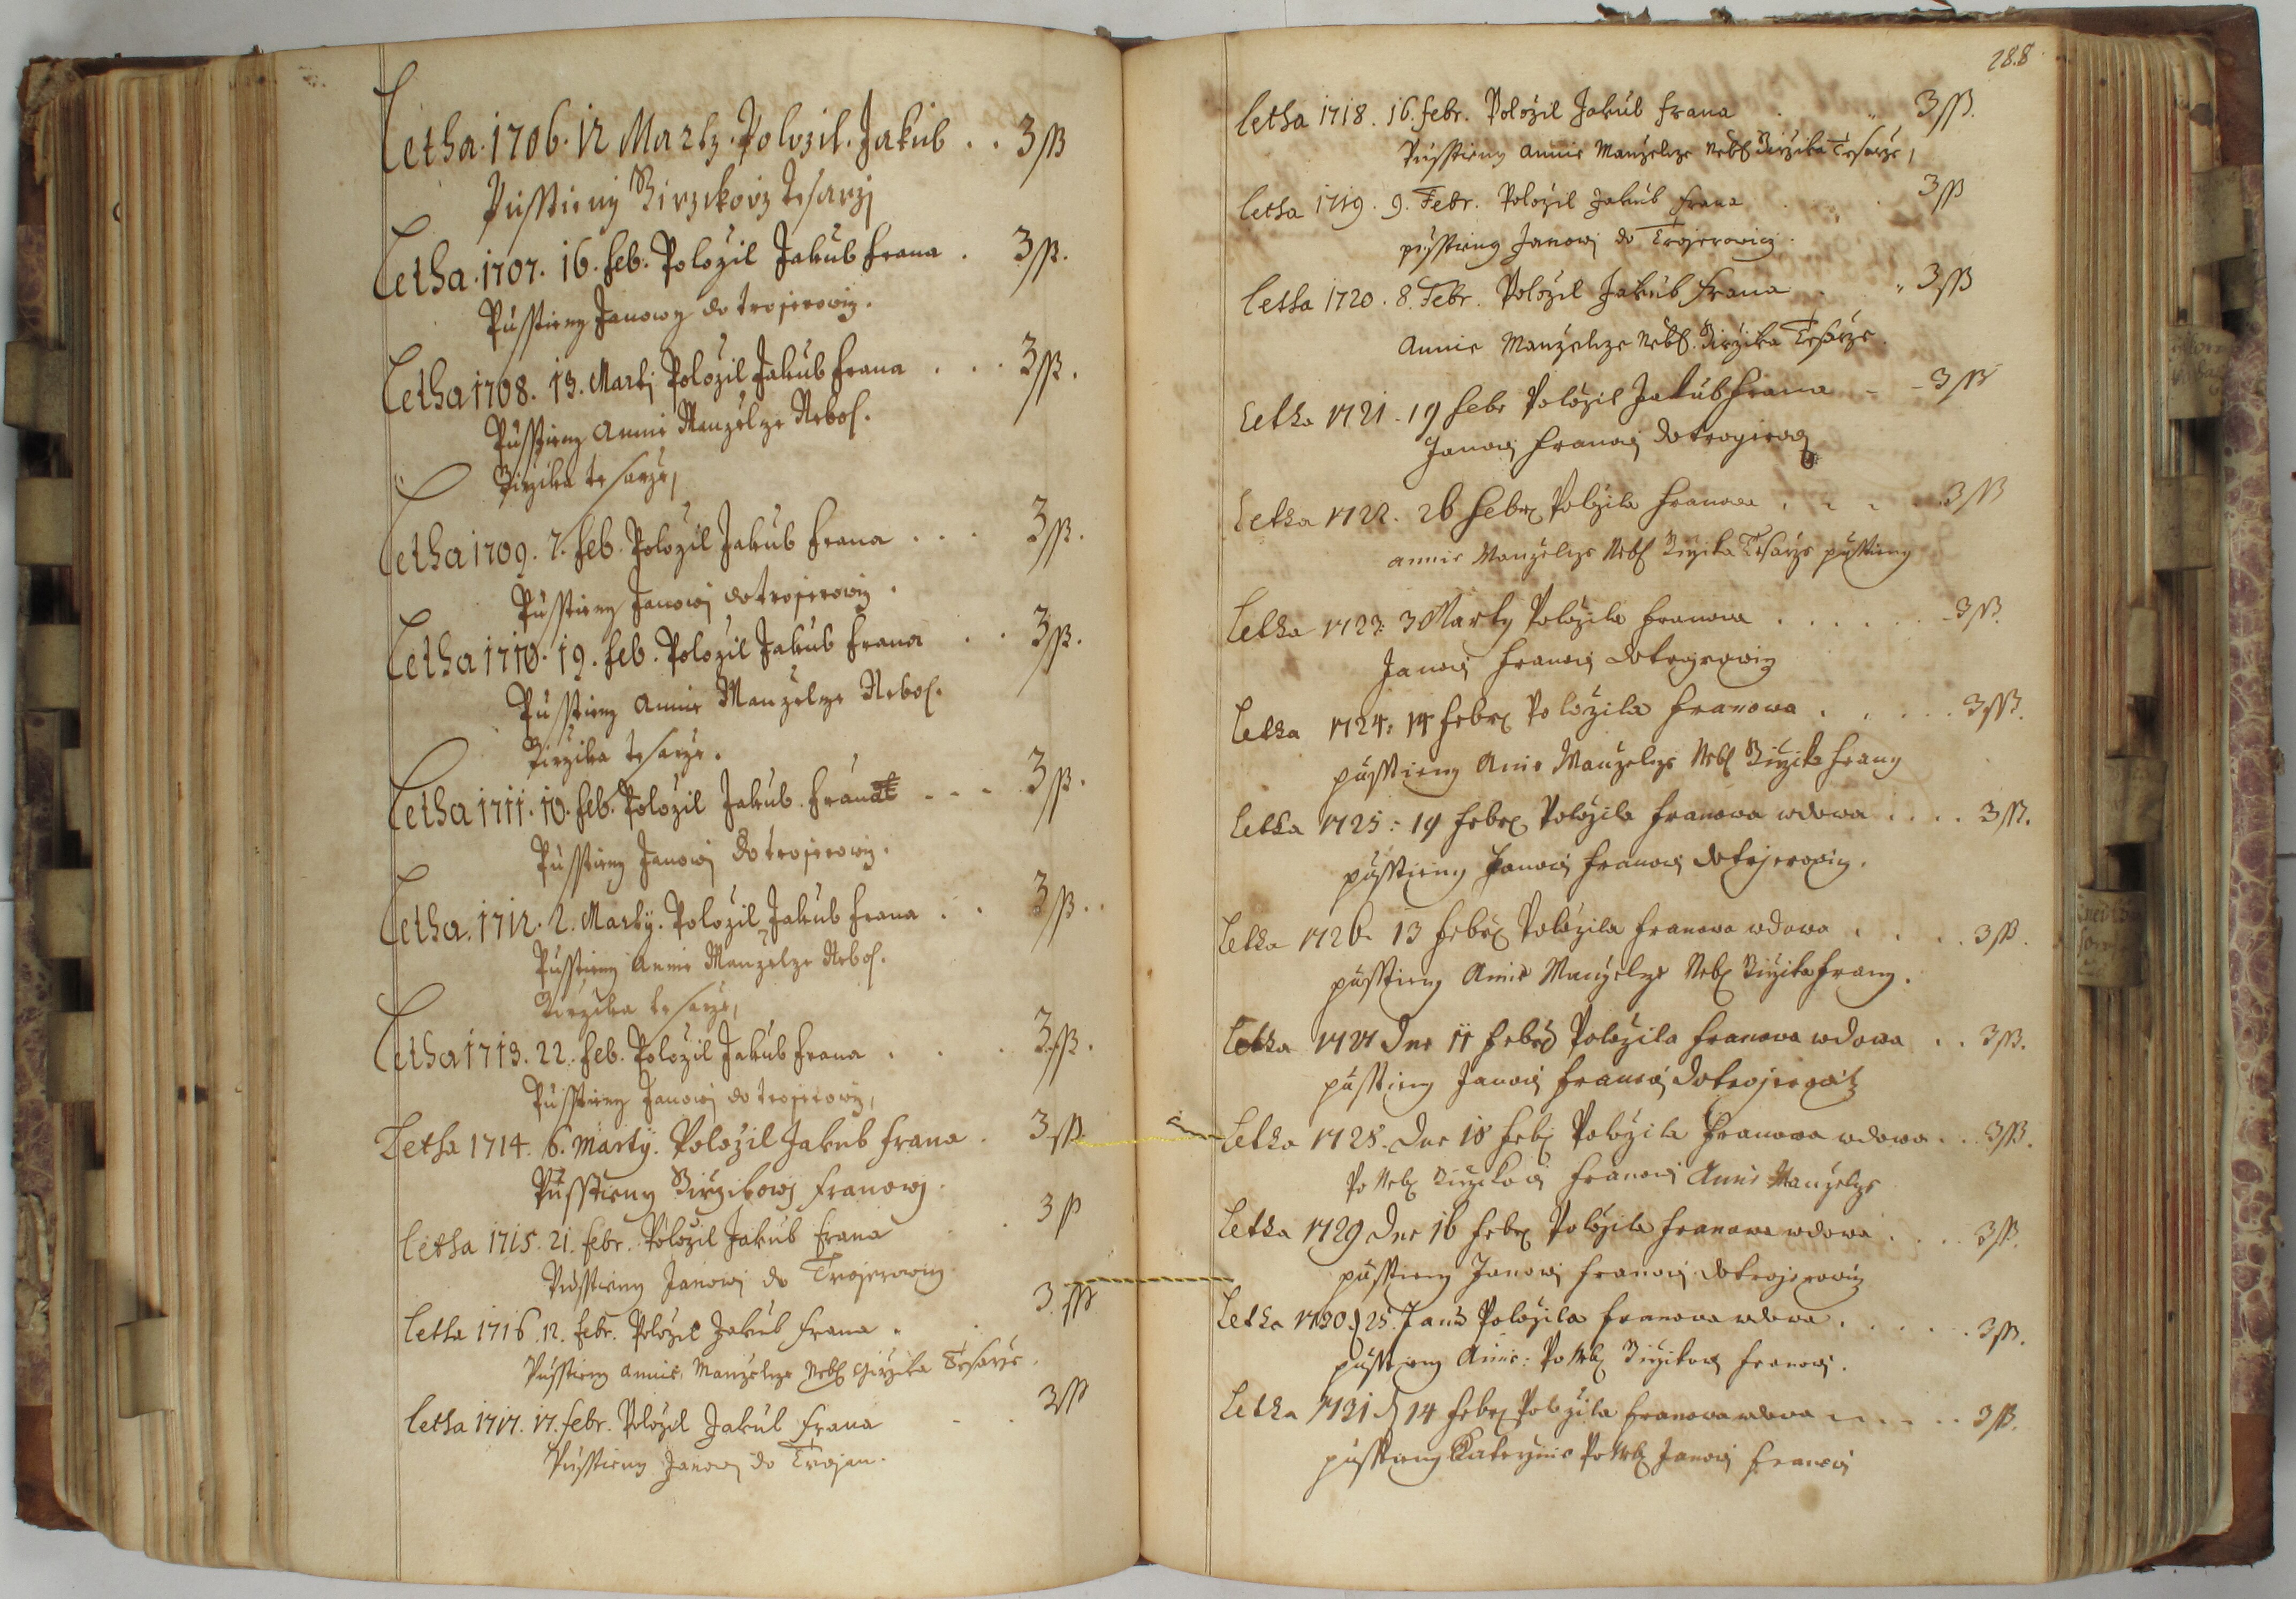 Letha 1706. 12 Marty. Polozil. Jakub . . 3 ß
Pusstieny Birzikowy Tesarzj
Letha 1707. 16. feb. Polozil Jakub frana . 3 ß.
Pusstieny Janowy do trojerowicz.
Letha 1708. 13. Martj Polozil Jakub frana . . . 3 ß.
Pusstieny Annie Manzelze Nebos.
Birzika tesarze,
Letha 1709. 7. feb. Polozil Jakub frana . . . 3 ß.
Pusstieny Janowj do trojerowicz.
Letha 1710. 19. feb. Polozil Jakub frana . . 3 ß.
Pusstieny Annie Manzelze Nebos.
Birzika tesarze.
Letha 1711. 10. feb. Polozil Jakub frana - - - 3 ß.
Pusstieny Janowj do trojerowicz.
Letha. 1712. 2. Marty. Polozil Jakub frana . . 3 ß..
Pusstieny Annie Manzelze Nebos.
Birzika tesarze,
Letha 1713. 22. feb. Polozil Jakub frana . . . 3 ß.
Pusstieny Janowj do trojerowicz,
Letha 1714. 6. Marty. Polozil Jakub frana . 3 ß
Pusstieny Birzikowj franowj.
letha 1715. 21. febr. Polozil Jakub frana . 3 ß
Pusstieny Janowj do Trojerowicz
letha 1716. 12. febr. Polozil Jakub frana . 3 ß
Pusstieny Annie, Manzelze Neb. Girzika Tesarze.
letha 1717. 17. febr. Polozil Jakub frana - . 3 ß
Pusstieny Janowj do Trojan.
288
letha 1718. 16. febr. Polozil Jakub frana . 3 ß.
Pusstieny Annie Manzelze Neb. Birzika Tesarze,
letha 1719. 9. Febr. Polozil Jakub frana . 3 ß
pusstieny Janowj do Trojerowicz.
letha 1720. 8. Febr. Polozil Jakub frana . 3 ß
Annie Manzelze Neb. Birzika Tesarze.
Letha 1721. 19 febr Polozil Jakub frana - - 3 ß
Janowj franowj do trogierow
Letha 1722. 26 febr Polozila franowa . . . 3 ß
annie Manzelze Neb Birzika Tesarze pusstieny
Letha 1723: 3 Marty Polozila franowa . . . . . - 3 ß.
Janowj franowj do trojerowicz
Letha 1724: 14 febr Polozila franowa . . . . 3 ß.
pusstieny Anie Manzelze Neb Birzika frany
Letha 1725: 19 febr Polozila franowa wdowa . . . . 3 ß.
pusstieny Janowj franowj do trojerowicz.
Letha 1726. 13 febr Polozila franowa wdowa . . . . 3 ß.
pusstieny Anie Manzelze Neb Birzika frany.
Letha 1727 dne 11 febr Polozila franowa wdowa . . 3 ß.
pusstieny Janowj franowj do trojerowitz
Letha 1728. dne 18 feb Polozila franowa wdowa . . . 3 ß.
Po Neb Birzikowj franowj Anie Manzelze
Letha 1729 dne 16 febr Polozila franowa wdowa . . . . 3 ß.
pusstieny Janowj franowj do trojerowicz
Letha 1730 d 25. Janu Polozila franowa wdowa . . . . . 3 ß.
pusstieny Anie: Po Neb Birzikow franowj.
Letha 1731 d 14 febr Polozila franowa wdowa . . . . 3 ß.
pusstieny Katerzinie Po Neb Janowj franowj